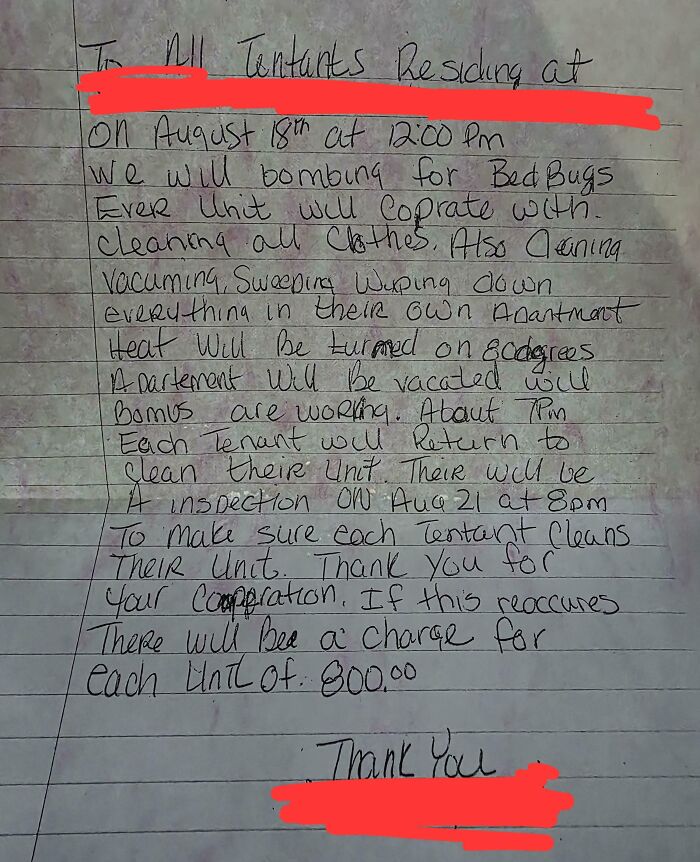 To All Tentants Residing at
on August 18th at 12:00 Pm
we will bombing for Bed Bugs
Ever Unit will Coprate with.
cleaning all Clothes. Also Cleaning
vacuming, Sweeping Wiping down
everything in their own Apantment
Heat Will Be turned on 80degrees
Apartement Will Be vacated will
Bombs are working. About 7Pm
Each Tenant will Return to
clean their Unit. Their will be
A inspection ON Aug 21 at 8pm
To make sure each Tentant Cleans
Their Unit. Thank you for
your Cooperation. If this reoccures
There will Bee a charge for
each Unit of. 800.00
Thank You